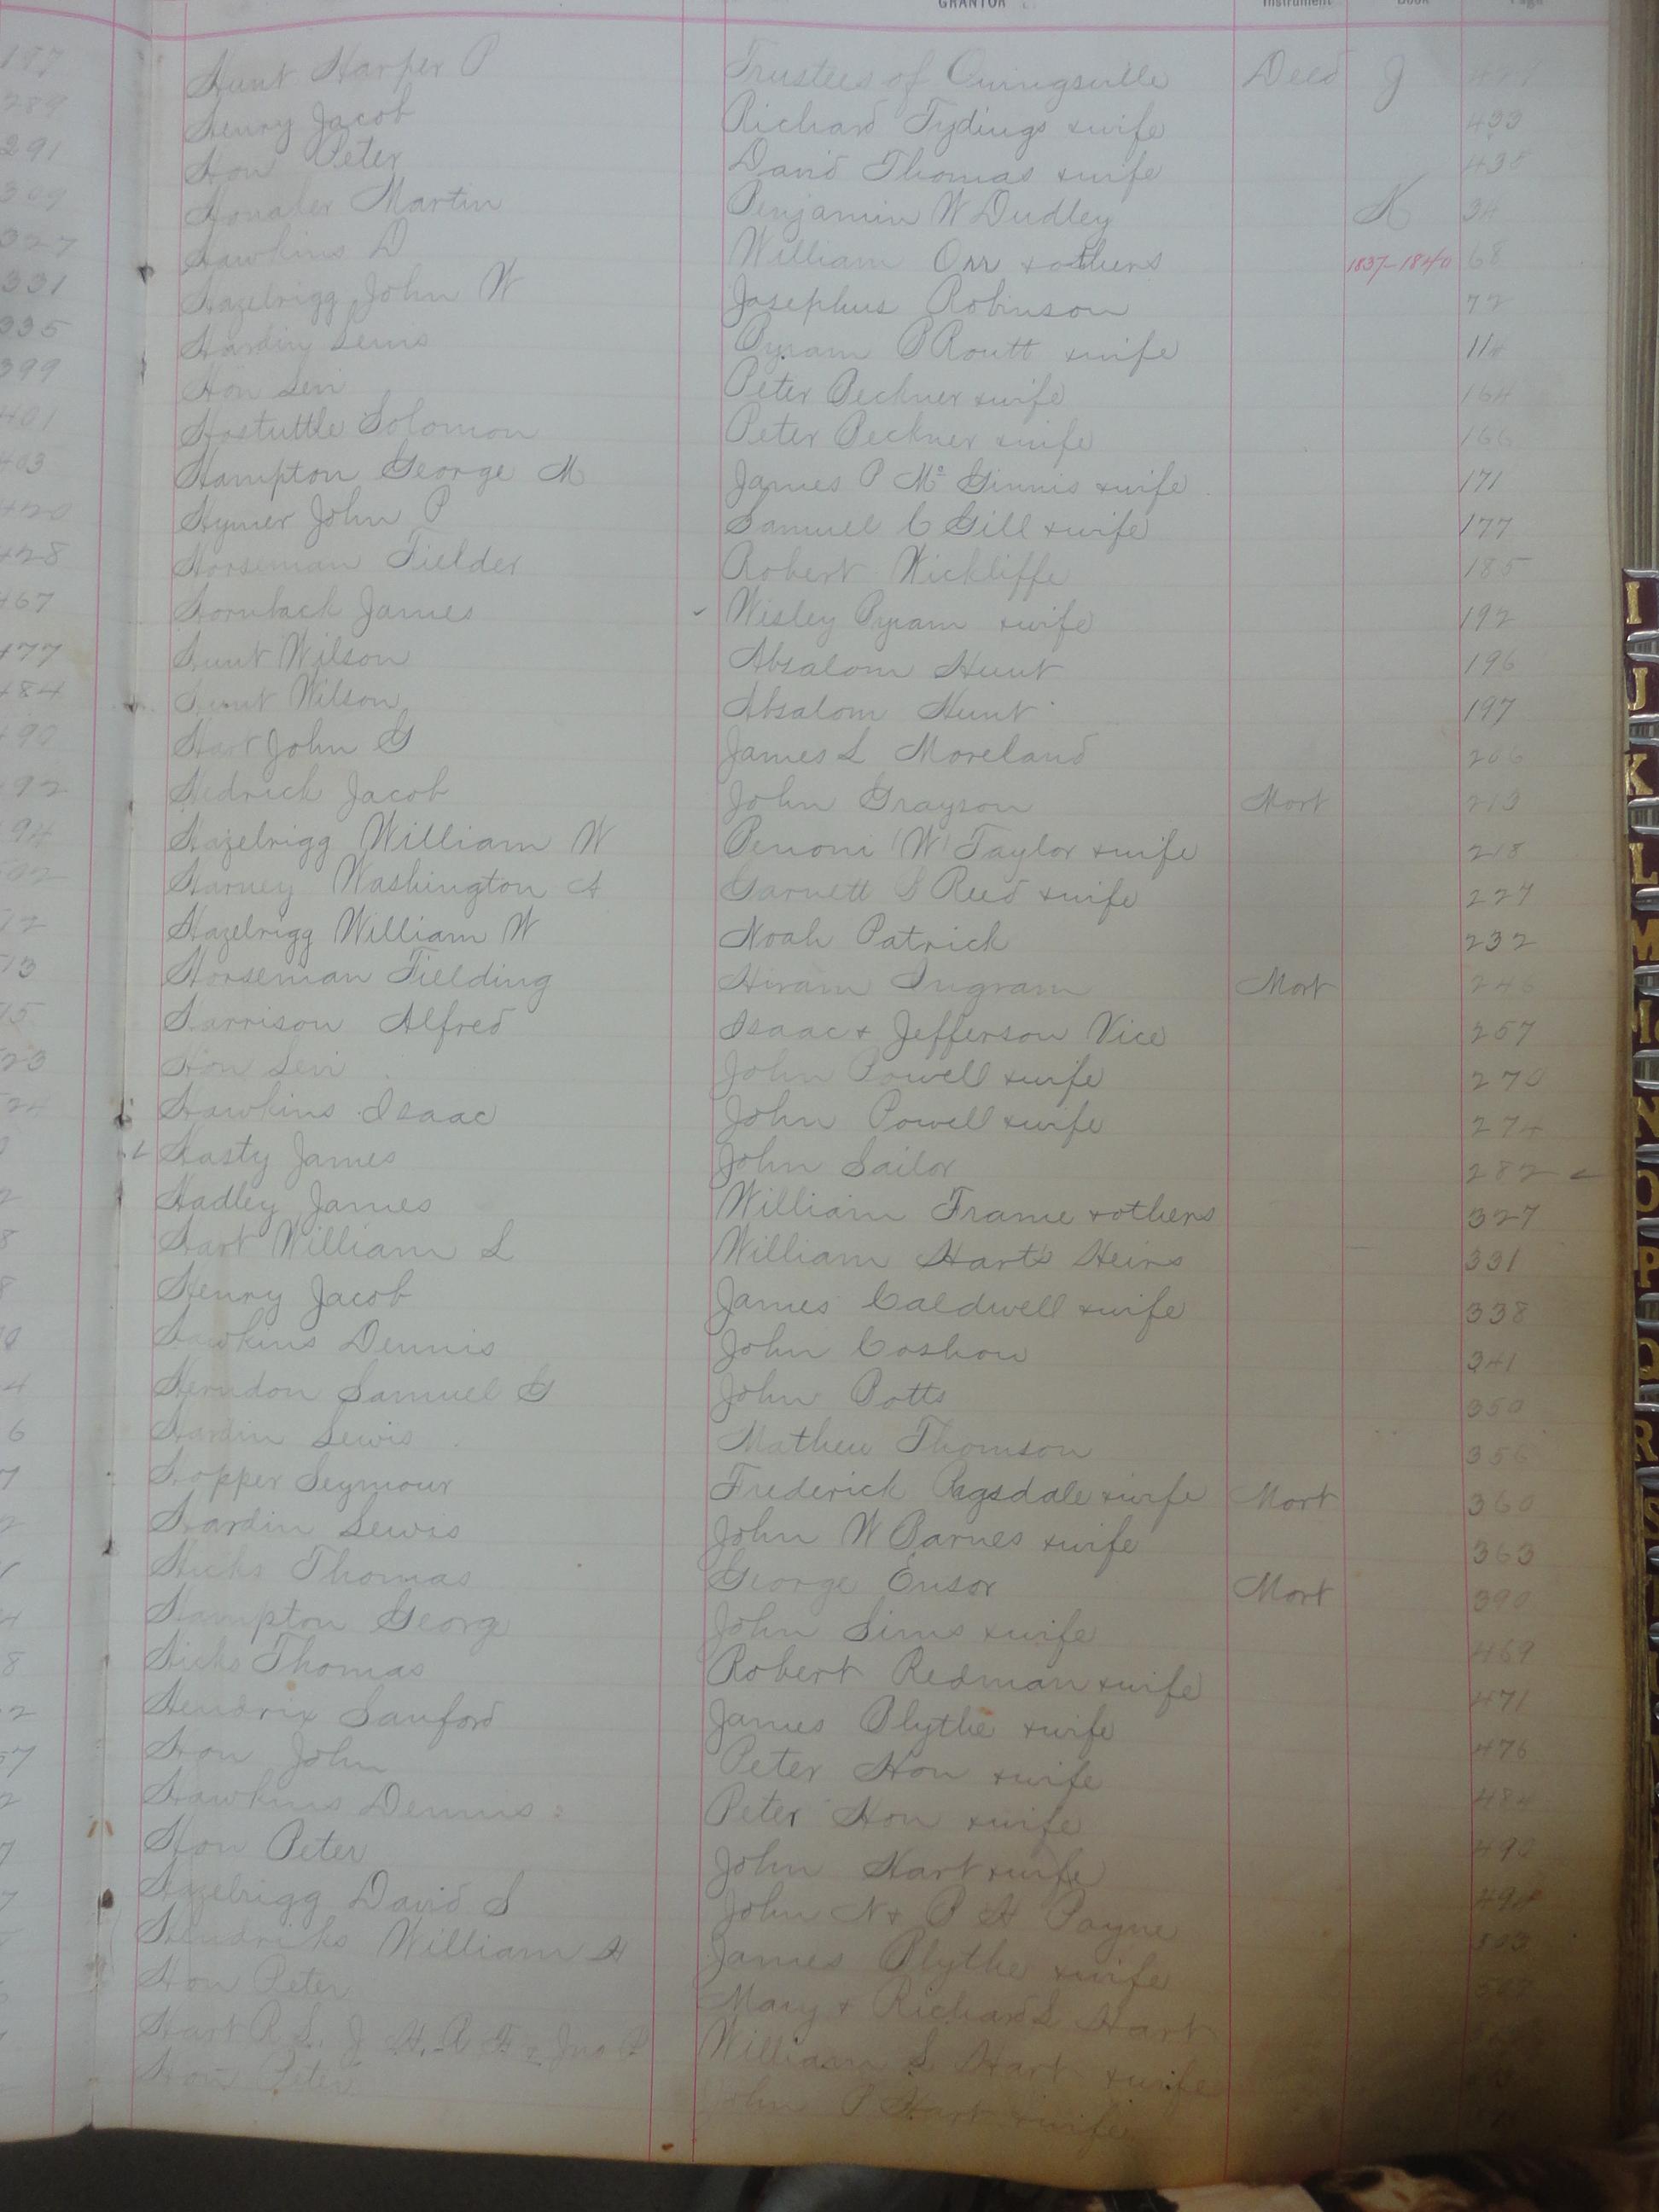 GRANTOR Instrument Book Page
187 Hunt Harper P Trustees of Owingsville Deed J 429
289 Henry Jacob Richard Tydings & wife 433
291 Hon Peter David Thomas & wife 438
309 Martin Benjamin W Dudley K 34
327 Hawkins D William Orr & others 1837-1840 68
331 Hazelrigg John W Josephus Robinson 72
335 Hardin Lewis Byram P Routt & wife 114
399 Hon Levi Peter Beckner & wife 164
401 Hostuttle Solomon Peter Beckner & wife 166
403 Hampton George M James P Mc Ginnis & wife 171
420 Hymer John P Samuel C Gill & wife 177
428 Horseman Fielder Robert Wickliffe 185
467 Hornback James Wisley Byram & wife 192
477 Hunt Wilson Absalom Hunt 196
484 Hunt Wilson Absalom Hunt 197
490 Hart John G James L Moreland 206
92 Hedrick Jacob John Grayson Mort 213
94 Hazelrigg William W Benoni W Taylor & wife 218
02 Harney Washington A Garnett B Reed & wife 227
12 Hazelrigg William W Noah Patrick 232
13 Horseman Fielding Hiram Ingram Mort 246
15 Harrison Alfred Isaac & Jefferson Vice 257
23 Hon Levi John Powell & wife 270
24 Hawkins Isaac John Powell & wife 274
Hasty James John Sailor 282
2 Hadley James William Frame & others 327
8 Hart William L William Harts Heirs 331
8 Henry Jacob James Caldwell & wife 338
Hawkins Dennis John Coshow 341
4 Herndon Samuel G John Potts 350
6 Hardin Lewis Mathew Thomson 356
7 Hopper Seymour Frederick Ragsdale & wife Mort 360
2 Hardin Lewis John W Barnes & wife 363
Hicks Thomas George Ensor Mort 390
4 Hampton George John Sims & wife 469
8 Hicks Thomas Robert Redman & wife 471
2 Hendrix Sanford James Blythe & wife 476
57 Hon John Peter Hon & wife 484
2 Hawkins Dennis Peter Hon & wife 490
7 Hon Peter John Hart & wife 494
7 Hazelrigg David S John N & B H Payne 503
Hendricks William H James Blythe & wife
Hon Peter Mary & Richard L Hart
Hart R L. J H. R F & Jno P William L Hart & wife
Hon Peter John P Hart & wife
I
J
K
L
M
Mc
N
O
P
Q
R
S